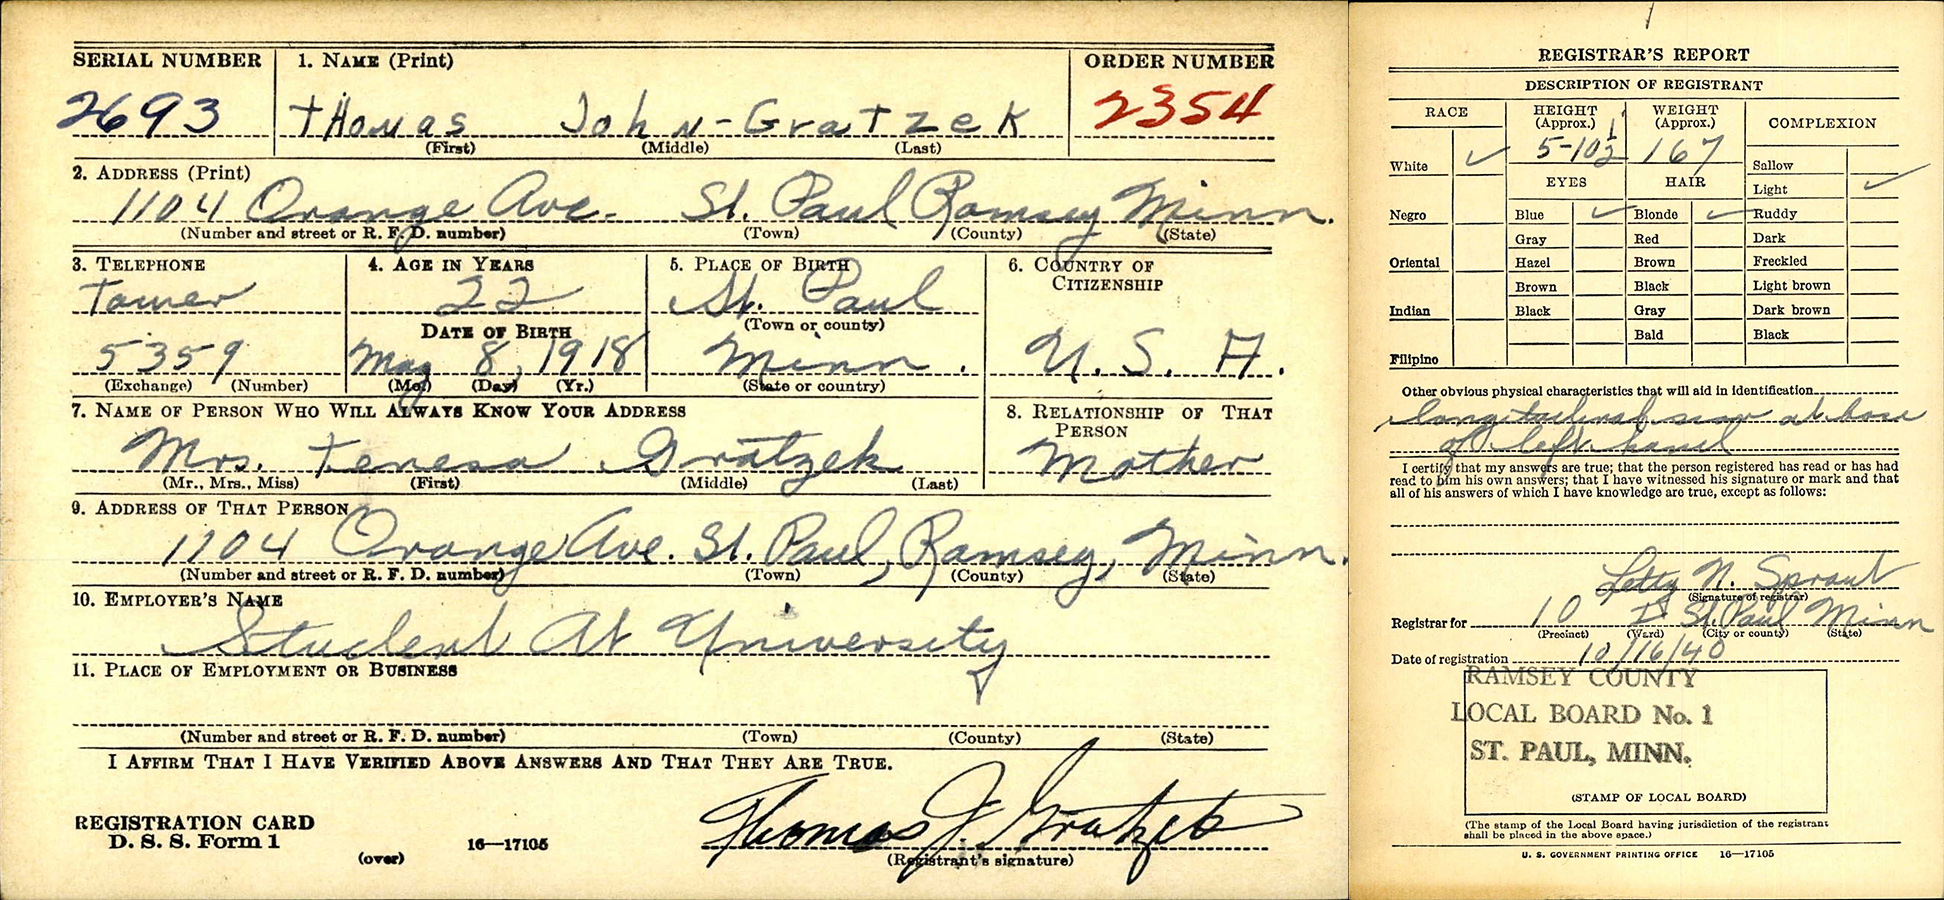 SERIAL NUMBER 1. NAME (Print) ORDER NUMBER
2693 THomas John-Gratzek 2354
(First) (Middle) (Last)
2. ADDRESS (Print)
1104 Orange Ave. St. Paul Ramsey Minn.
(Number and street or R. F. D. number) (Town) (County) (State)
3. TELEPHONE 4. AGE IN YEARS 5. PLACE OF BIRTH 6. COUNTRY OF
CITIZENSHIP
Tower 22 St. Paul
(Town or county)
DATE OF BIRTH
5359 May 8, 1918 Minn. U. S. A.
(Exchange) (Number) (Mo.) (Day) (Yr.) (State or country)
7. NAME OF PERSON WHO WILL ALWAYS KNOW YOUR ADDRESS 8. RELATIONSHIP OF THAT
PERSON
Mrs. Teresa Gratzek Mother
(Mr., Mrs., Miss) (First) (Middle) (Last)
9. ADDRESS OF THAT PERSON
1104 Orange Ave. St. Paul, Ramsey, Minn.
(Number and street or R. F. D. number) (Town) (County) (State)
10. EMPLOYER'S NAME
Student At University
11. PLACE OF EMPLOYMENT OR BUSINESS
(Number and street or R. F. D. number) (Town) (County) (State)
I AFFIRM THAT I HAVE VERIFIED ABOVE ANSWERS AND THAT THEY ARE TRUE.
REGISTRATION CARD
D. S. S. Form 1 16—17105
(over)
Thomas J. Gratzek
(Registrant's signature)
REGISTRAR'S REPORT
DESCRIPTION OF REGISTRANT
RACE HEIGHT (Approx.) WEIGHT (Approx.) COMPLEXION
5-10½ 167
White ✓ Sallow
EYES HAIR Light ✓
Negro Blue ✓ Blonde ✓ Ruddy
Gray Red Dark
Oriental Hazel Brown Freckled
Brown Black Light brown
Indian Black Gray Dark brown
Bald Black
Filipino
Other obvious physical characteristics that will aid in identification
longitudinal scar at base
of left hand
I certify that my answers are true; that the person registered has read or has had
read to him his own answers; that I have witnessed his signature or mark and that
all of his answers of which I have knowledge are true, except as follows:
Letty N. Sprout
(Signature of registrar)
Registrar for 10 St. Paul Minn
(Precinct) (Ward) (City or county) (State)
Date of registration 10/16/40
RAMSEY COUNTY
LOCAL BOARD No. 1
ST. PAUL, MINN.
(STAMP OF LOCAL BOARD)
(The stamp of the Local Board having jurisdiction of the registrant
shall be placed in the above space.)
U. S. GOVERNMENT PRINTING OFFICE 16—17105